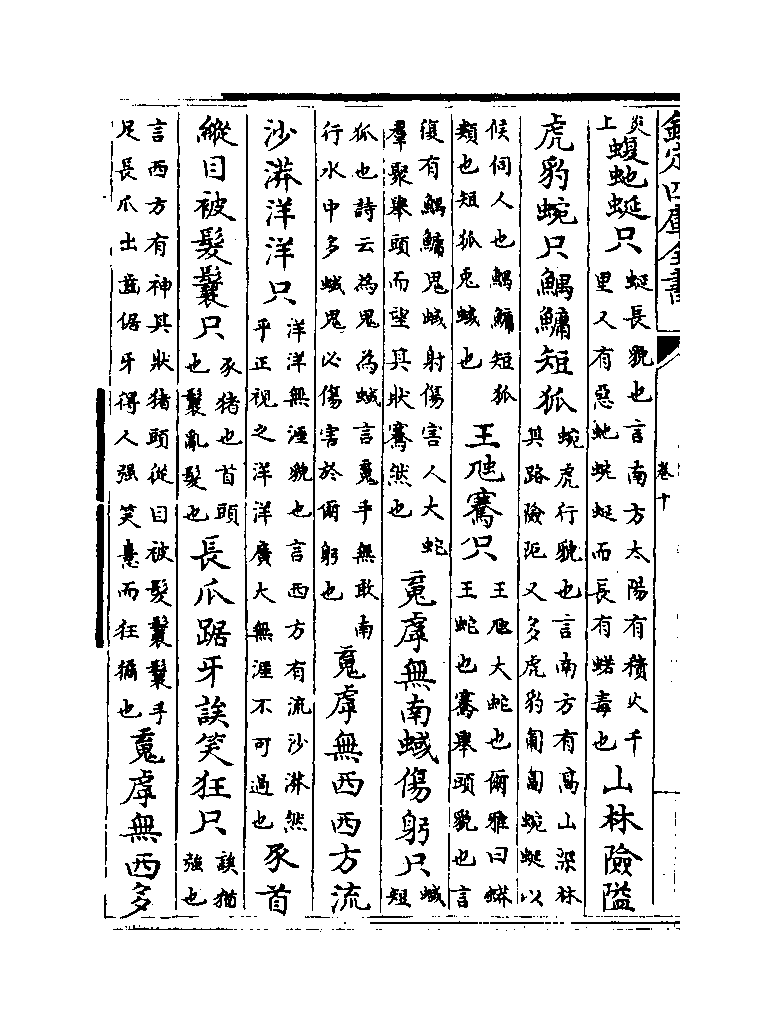 欽定四庫全書 卷十
炎上蝮虵蜒只蜒長貌也言南方太陽有積火千里又有惡虵蜿蜒而長有蠚毒也山林險隘
虎豹蜿只鰅鱅短狐蜿虎行貌也言南方有高山深林其路險阨又多虎豹匍匐蜿蜒以
候伺人也鰅鱅短狐類也短狐鬼蜮也王虺騫只王虺大蛇也爾雅曰蟒王蛇也騫舉頭貌也言
復有鰅鱅鬼蜮射傷害人大蛇羣聚舉頭而望其狀騫然也䰟虖無南蜮傷躬只蜮短
狐也詩云為鬼為蜮言䰟乎無敢南行水中多蜮鬼必傷害於爾躬也䰟虖無西西方流
沙漭洋洋只洋洋無涯貌也言西方有流沙漭然平正視之洋洋廣大無涯不可過也豕首
縱目被髮鬤只豕猪也首頭也鬤亂髮也長爪踞牙誒笑狂只誒猶强也
言西方有神其狀猪頭從目被髮鬤鬤手足長爪出齒倨牙得人强笑憙而狂獝也䰟虖無西多